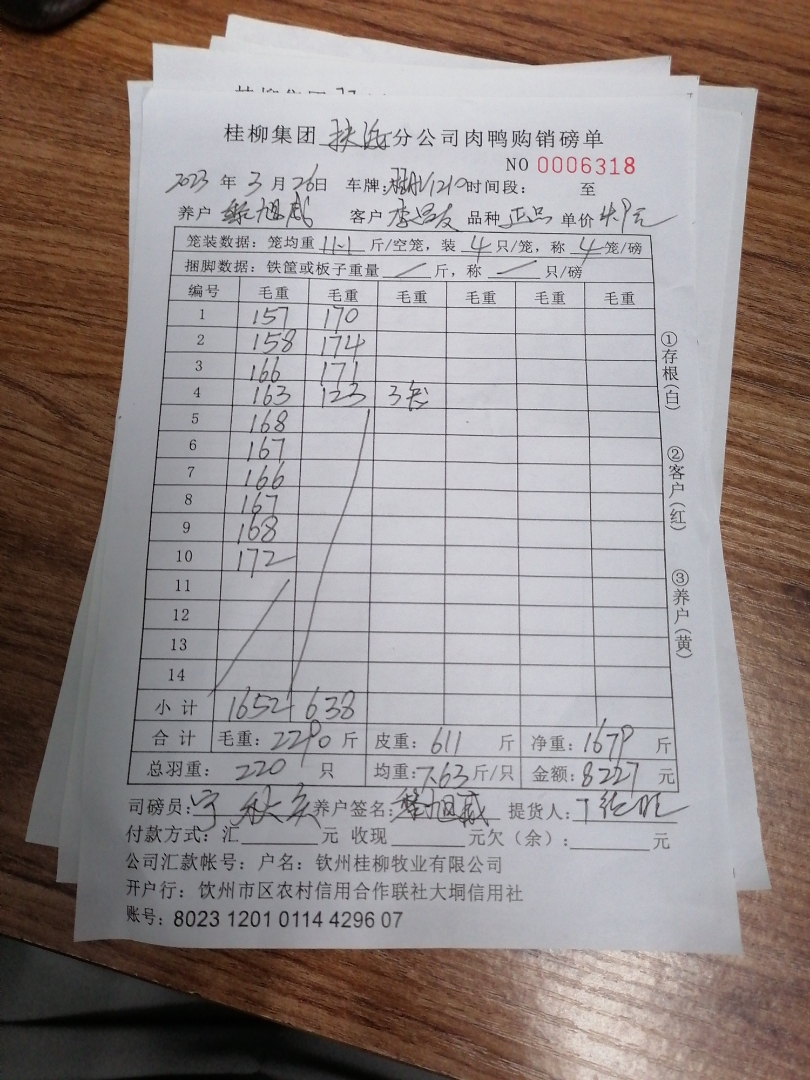 桂柳集团 分公司肉鸭购销磅单
NO 0006318
2023 年 3 月 26 日 车牌: 1210 时间段: 至
养户 旭威 客户 李昌友 品种 正品 单价 4.9元
笼装数据: 笼均重 11.1 斤/空笼, 装 4 只/笼, 称 4 笼/磅
捆脚数据: 铁筐或板子重量 / 斤, 称 / 只/磅
编号 毛重 毛重 毛重 毛重 毛重 毛重
1 157 170
2 158 174
3 166 171
4 163 123 3笼
5 168
6 167
7 166
8 167
9 168
10 172
11
12
13
14
小计 1652 638
合计 毛重: 2290 斤 皮重: 611 斤 净重: 1679 斤
总羽重: 220 只 均重: 7.63 斤/只 金额: 8227 元
司磅员: 宁秋夹 养户签名: 旭威 提货人:
付款方式: 汇 元 收现 元 欠(余): 元
公司汇款帐号: 户名: 钦州桂柳牧业有限公司
开户行: 钦州市区农村信用合作联社大垌信用社
账号: 8023 1201 0114 4296 07
①存根(白)
②客户(红)
③养户(黄)